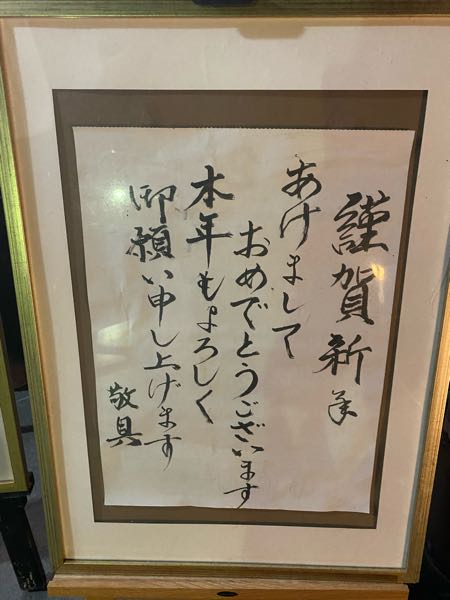 謹賀新年
あけまして
おめでとうございます
本年もよろしく
御願い申し上げます
敬具